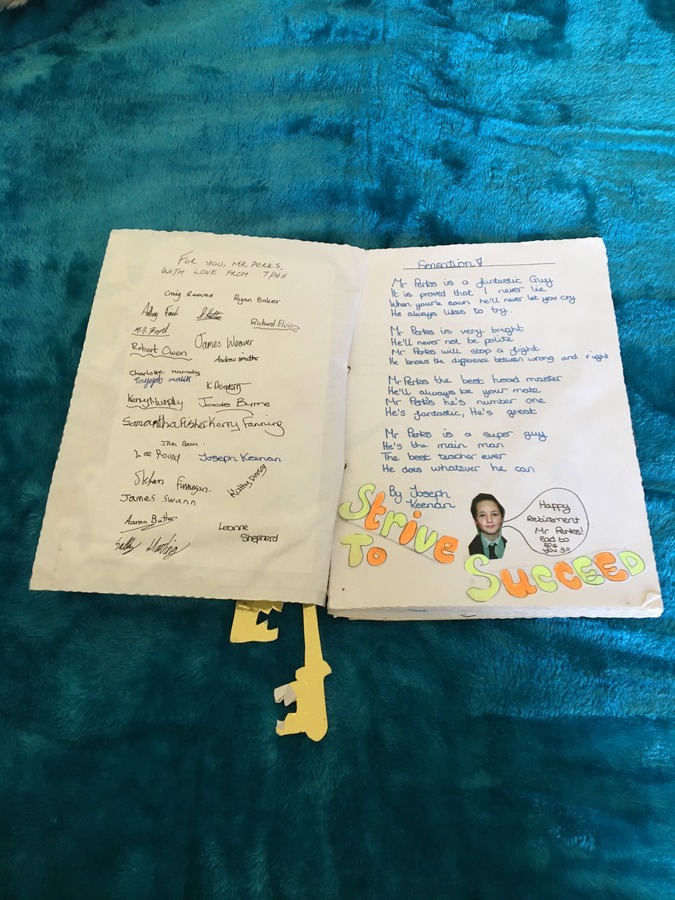 FOR YOU, MR PERKS,
WITH LOVE FROM 7PAH
Craig Reeves
Ryan Baker
Richard
M.D. Ford
Robert Owen
James Weaver
Andrew
Charlotte
K
Kerry Murphy
Byrne
Samantha Kerry Fanning
Lee Round
Joseph Keenan
Finnegan.
Kathy
James Swann
Aaron Butter
Leanne
Shepherd
Sally
Generation V
Mr Perks is a fantastic Guy
It is proved that I never lie
When your'e down he'll never let you cry
He always likes to try.
Mr Perks is very bright
He'll never not be polite
Mr Perks will stop a fight
He knows the difference between wrong and right
Mr Perks the best head master
He'll always be your mate
Mr Perks he's number one
He's fantastic, He's great
Mr Perks is a super guy
He's the main man
The best teacher ever
He does whatever he can
By Joseph
Keenan
Strive
To
Succeed
Happy
Retirement
Mr Perks!
Sad to
see
you go